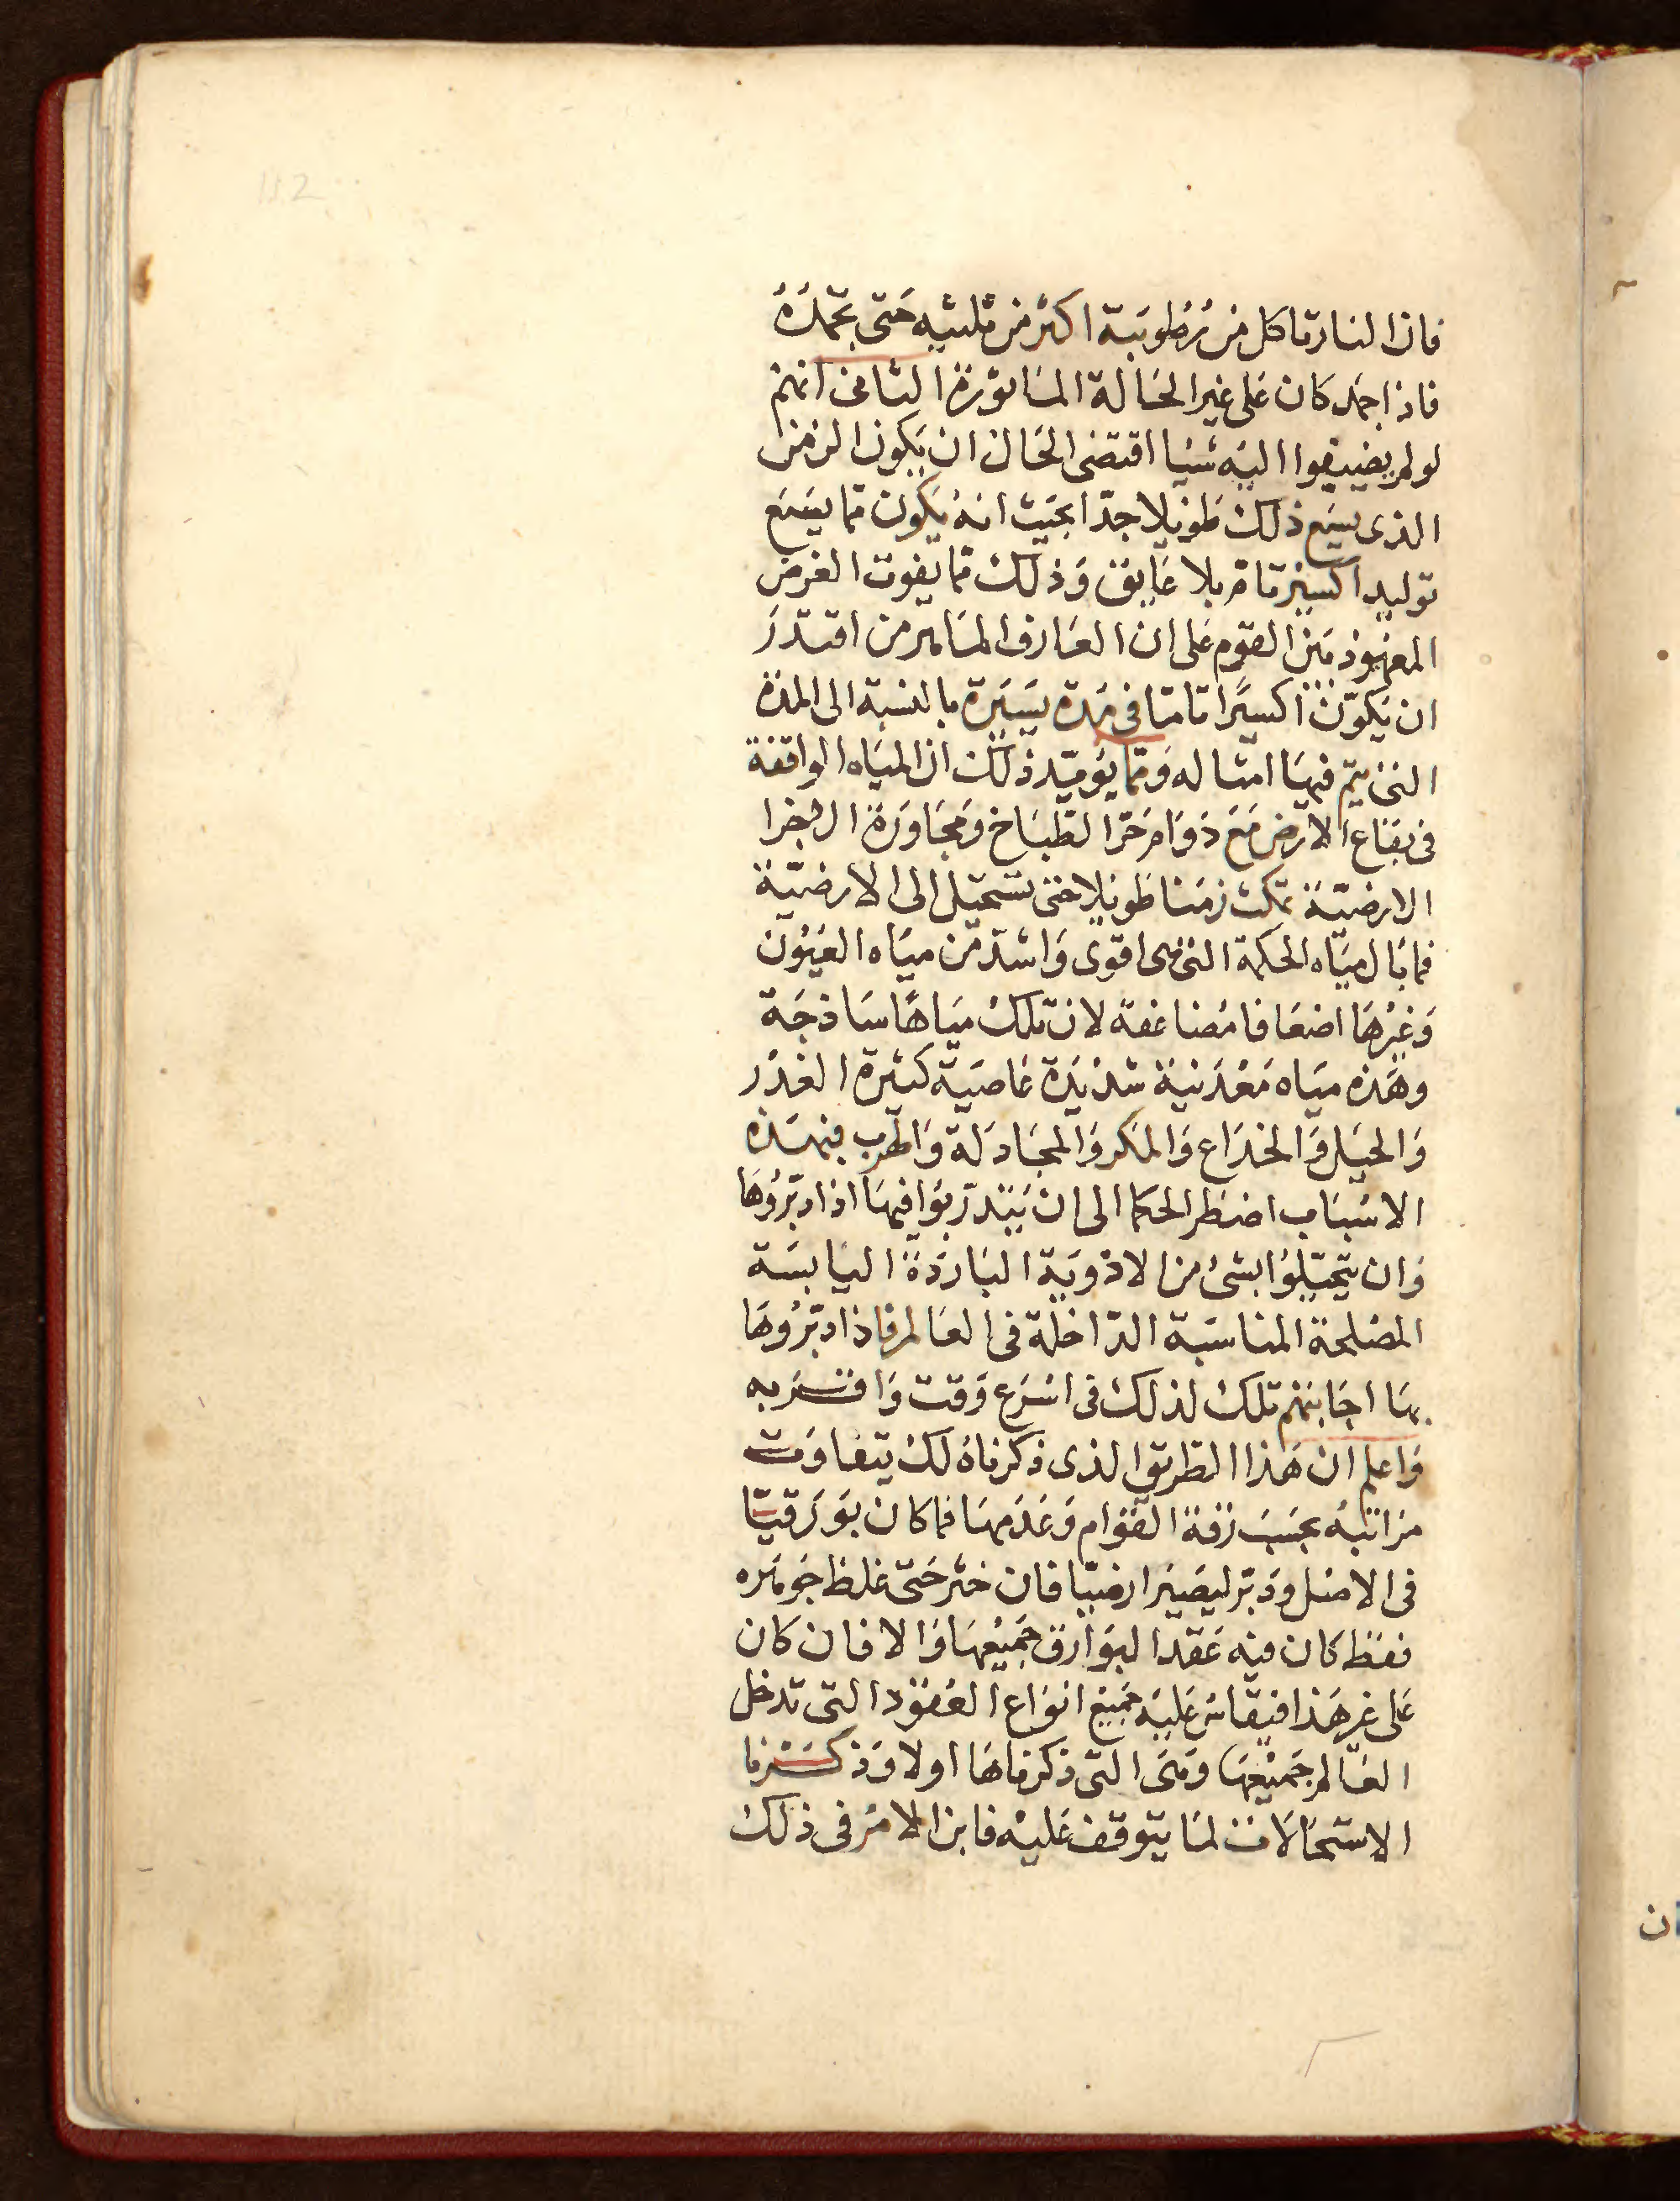 فان النار تاكل من رطوبته اكثر من ثلثيه حتى تجمده
فاذا جمد كان على غير الحالة الماثورة الثانى انهم
لو لم يضيفوا اليه شيا اقتضى الحال ان يكون الزمن
الذى يسع ذلك طويلا جدا بحيث انه يكون مما يسع
توليد اكسير تام بلا عايق وذلك مما يفوت الغرض
المعهود بين القوم على ان العارف الماهر من اقتدر
ان يكون اكسيرا تاما فى مدة يسيرة بالنسبة الى المدة
التى يتم فيها امثاله ومما يويد ذلك ان المياه الواقفة
فى بقاع الارض مع دوام حر الطباخ ومجاورة الاجزا
الارضية تمكث زمنا طويلا حتى تستحيل الى الارضية
فما بال مياه الحكمة التى هى اقوى واشد من مياه العيون
وغيرها اضعافا مضاعفة لان تلك مياها ساذجة
وهذه مياه معدنية شديدة عاصية كثيرة الغدر
والحيل والخداع والمكر والمجادلة والهرب فبهذه
الاسباب اضطر الحكما الى ان يتدربوا فيها اذا دبروها
وان يتحيلوا بشئ من الادوية الباردة اليابسة
المصلحة المناسبة الداخلة فى العالم فاذا دبروها
بها اجابتهم تلك لذلك فى اسرع وقت واقربه
واعلم ان هذا الطريق الذى ذكرناه لك يتفاوت
مراتبه بحسب رقة القوام وعدمها فما كان بورقيا
فى الاصل ودبر ليصير ارضيا فان خثر حتى غلظ جوهره
فقط كان فيه عقد البوارق جميعها والا فان كان
على غير هذا فيقاس عليه جميع انواع العقود التى تدخل
العالم جميعها وهى التى ذكرناها اولا وذكرنا
الاستحالات لما يتوقف عليه فابن الامر فى ذلك
ان